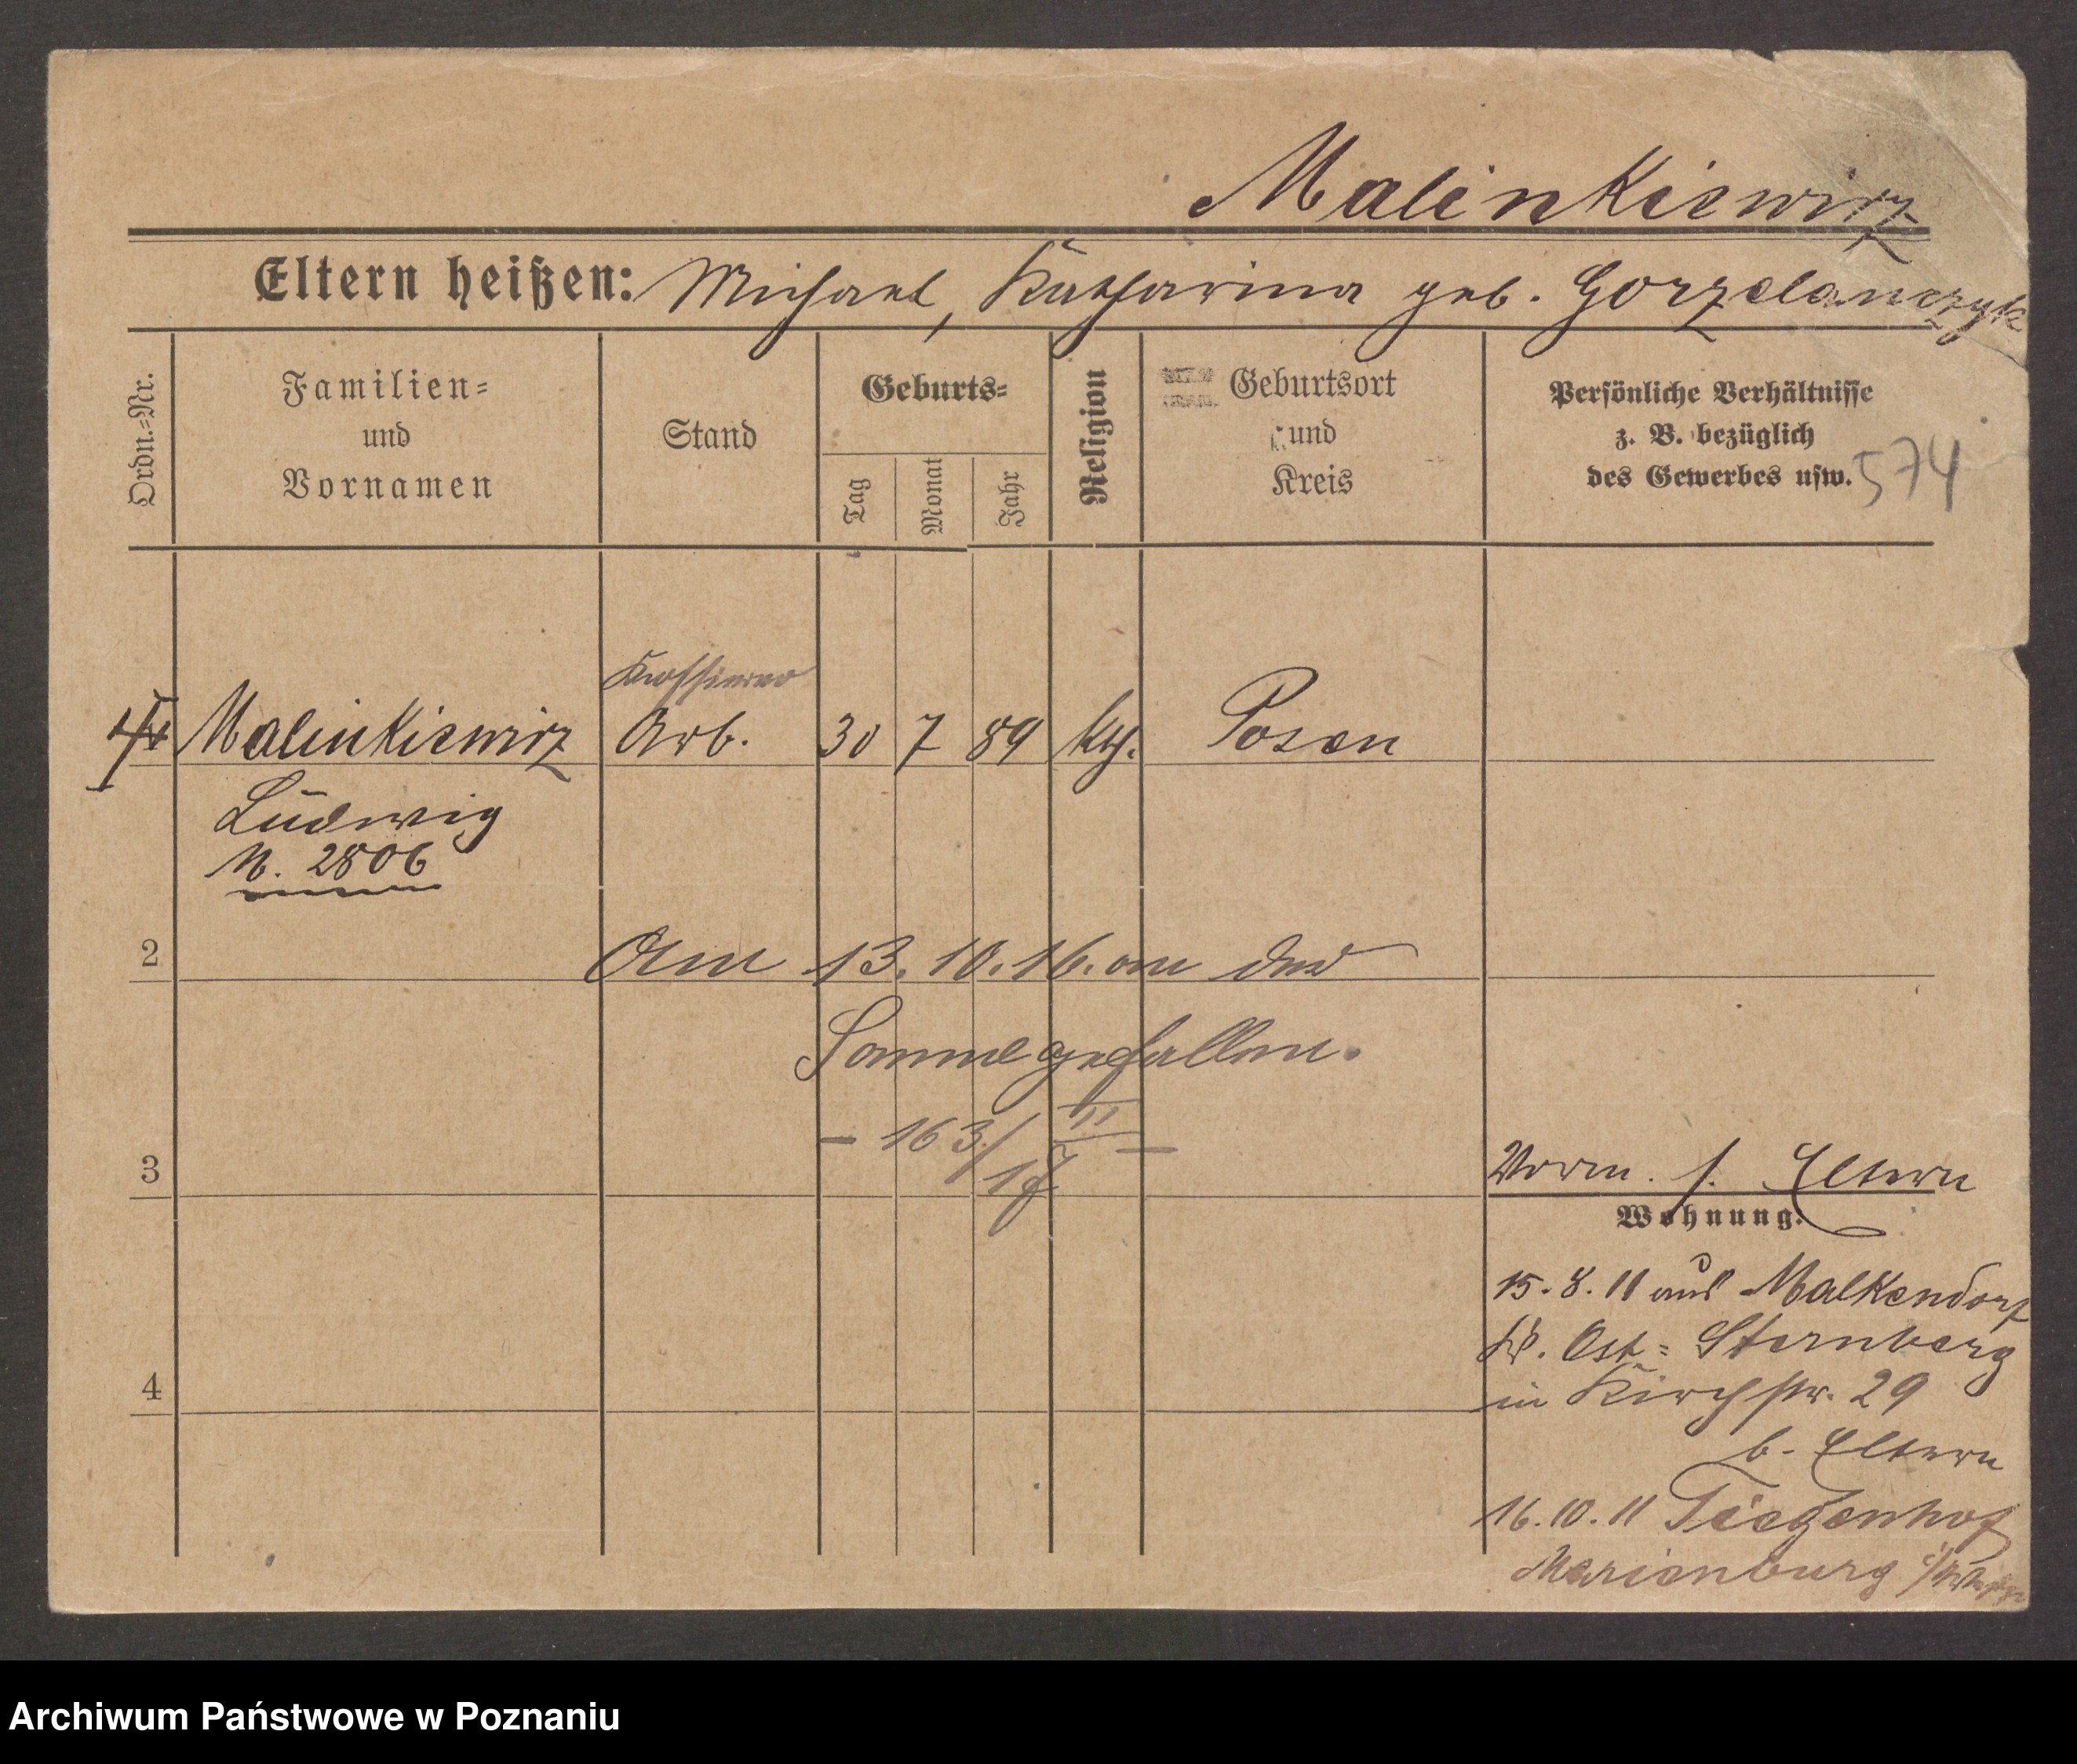 Malinkiewicz
Eltern heißen: Michael, Katharina geb. Gorzelanczyk
Ordn.-Nr.
Familien-
und
Vornamen
Stand
Geburts-
Tag
Monat
Jahr
Religion
Geburtsort
und
Kreis
Persönliche Verhältnisse
z. B. bezüglich
des Gewerbes usw.
574
Malinkiewicz Arb. 30 7 89 kth. Posen
Ludwig
N. 2806
2
Am 13.10.16. an der
Somme gefallen.
- 163/17 II -
3
Vorm. s. Eltern
Wohnung.
15.8.11 aus Malkendorf
Kr. Ost-Sternberg
in Kirchstr. 29
4
b. Eltern
16.10.11 Tiegenhof
Marienburg